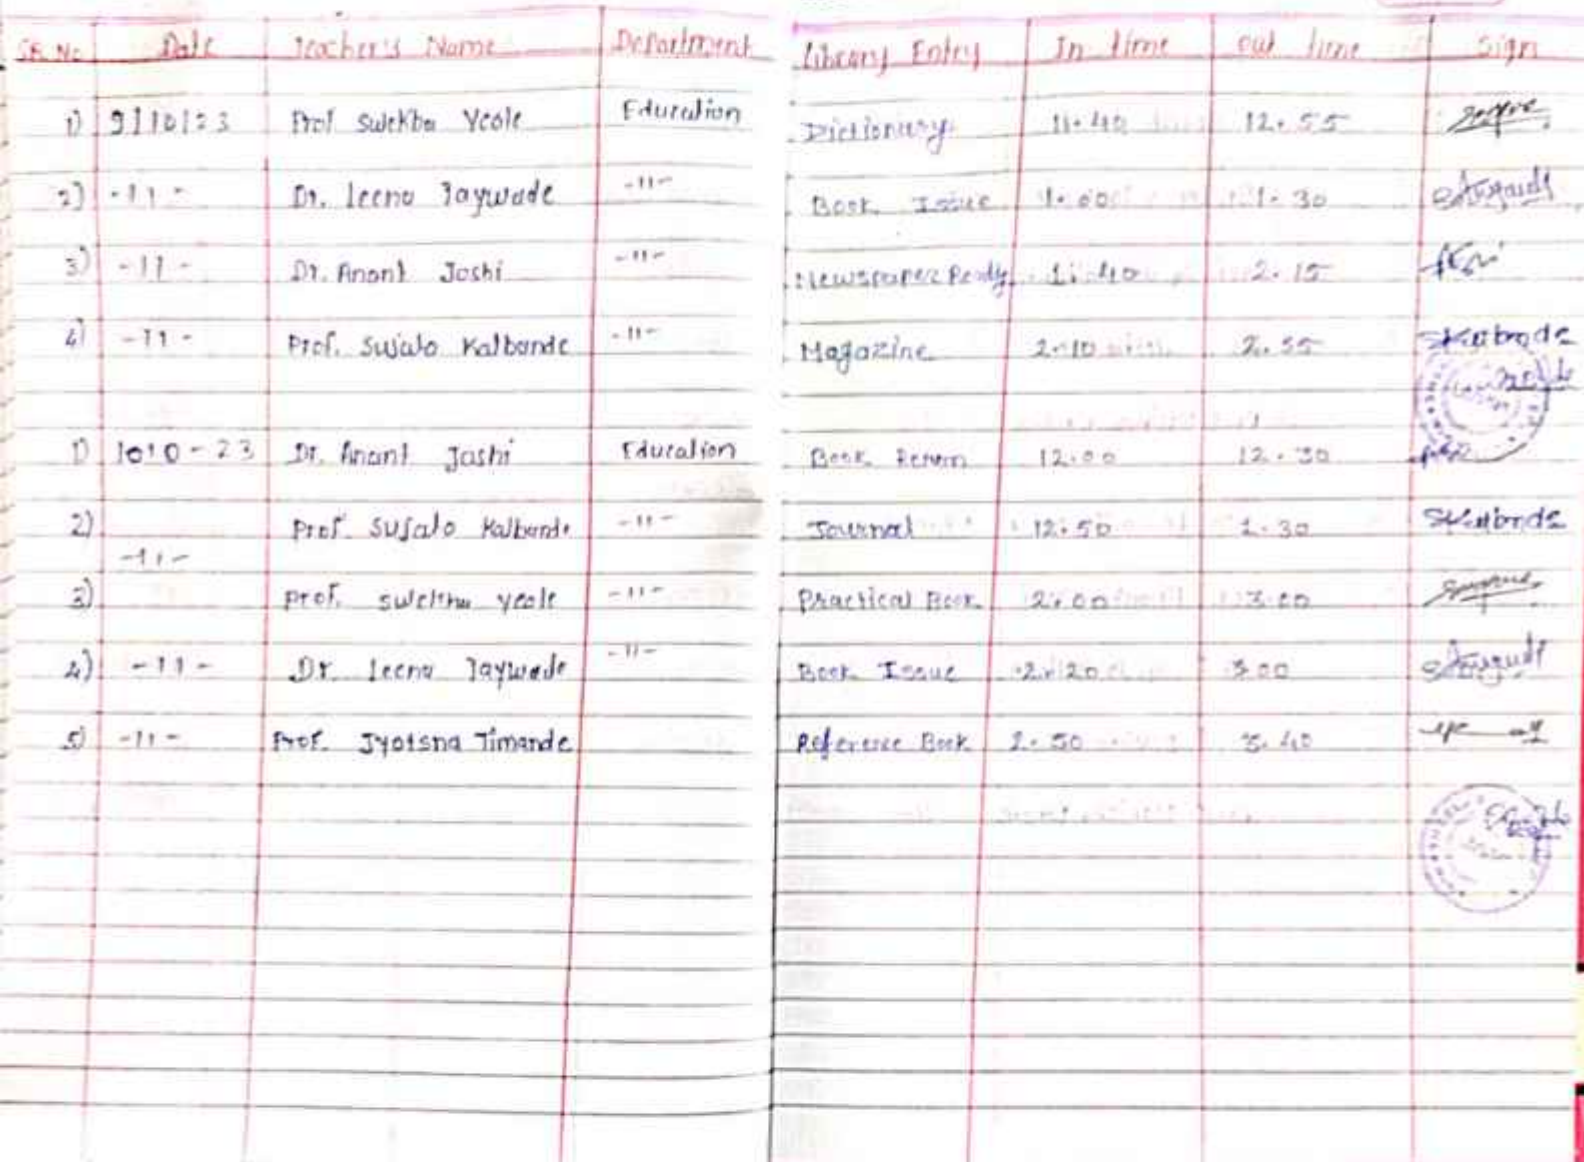 SR. No Date Teacher's Name Department Library Entry In time out time Sign
1) 9/10/23 Prof Swekha Yeole Education Dictionary 11.40 12.55
2) -11- Dr. leena Jaywade -11- Book Issue 1.00 1.30
3) -11- Dr. Anant Joshi -11- Newspaper 1.40 2.15
4) -11- Prof. Sujato Kalbande -11- Magazine 2.10 2.55 SKalbande
1) 1010-23 Dr. Anant Joshi Education Book Return 12.00 12.30
2) Prof. Sujato Kalbande -11- Journal 12.50 1.30 SKalbande
-11-
3) Prof. Swekha Yeole -11- Practical Book 2.00 3.00
4) -11- Dr. leena Jaywade -11- Book Issue 2.20 3.00
5) -11- Prof. Jyotsna Timande Reference Book 2.50 3.40